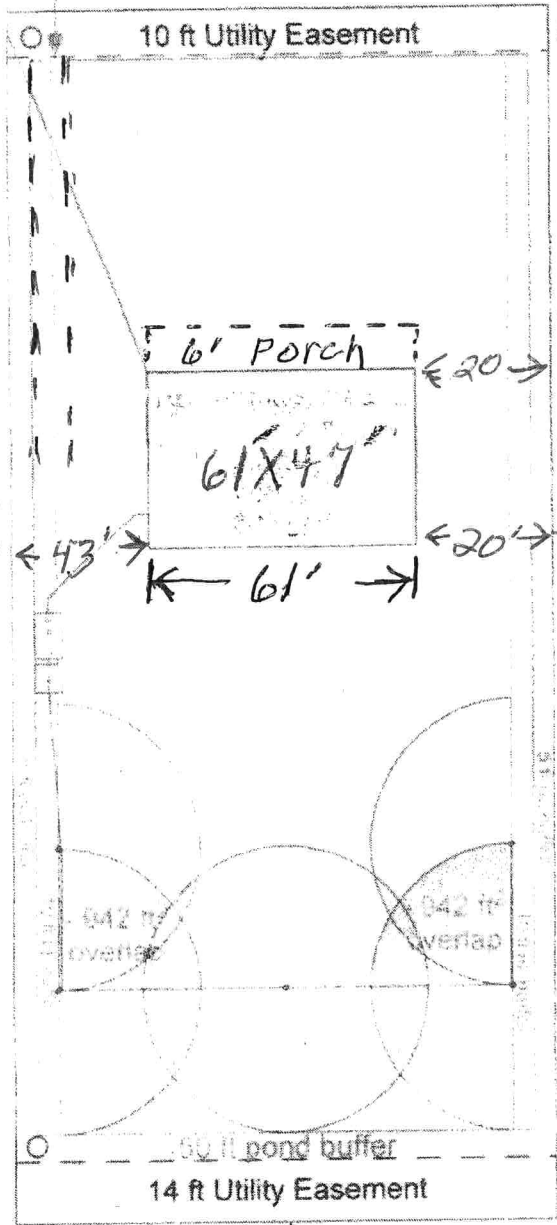 10 ft Utility Easement
6' Porch
20
61'X47'
43'
20'
61'
042 ft²
overlap
042 ft²
overlap
50 ft pond buffer
14 ft Utility Easement